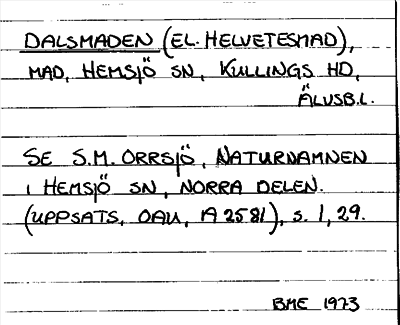 DALSMADEN (EL. HELVETESMAD),
MAD, HEMSJÖ SN, KULLINGS HD,
ÄLVSB.L.
SE S.M. ORRSJÖ, NATURNAMNEN
I HEMSJÖ SN, NORRA DELEN.
(UPPSATS, OAU, A 2581), S. 1, 29.
BME 1973